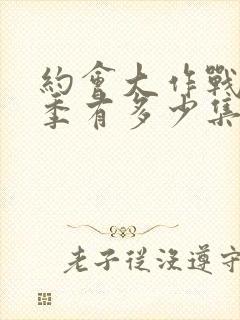 約會大作戰
季有多少集
老子從沒遵守